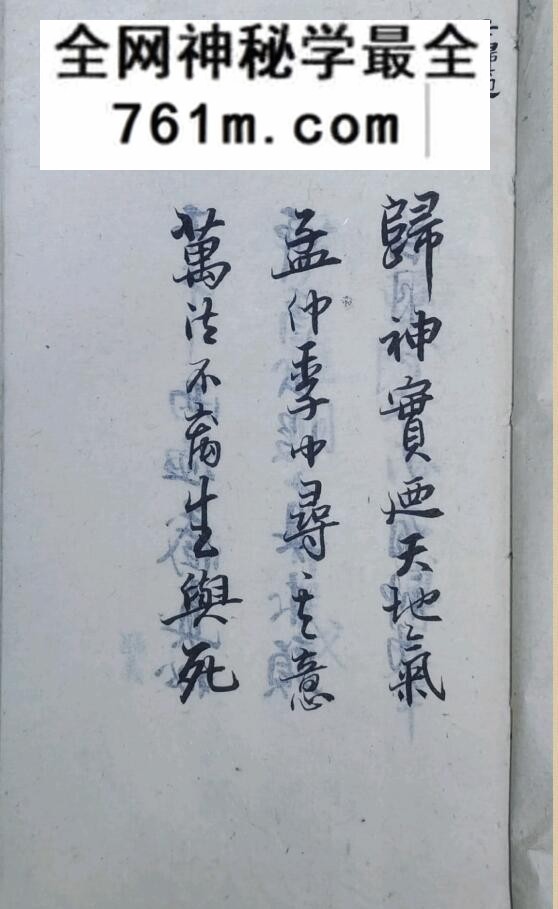 全网神秘学最全
761m.com
歸神實迺天地氣
孟仲季中尋其意
萬法不离生與死